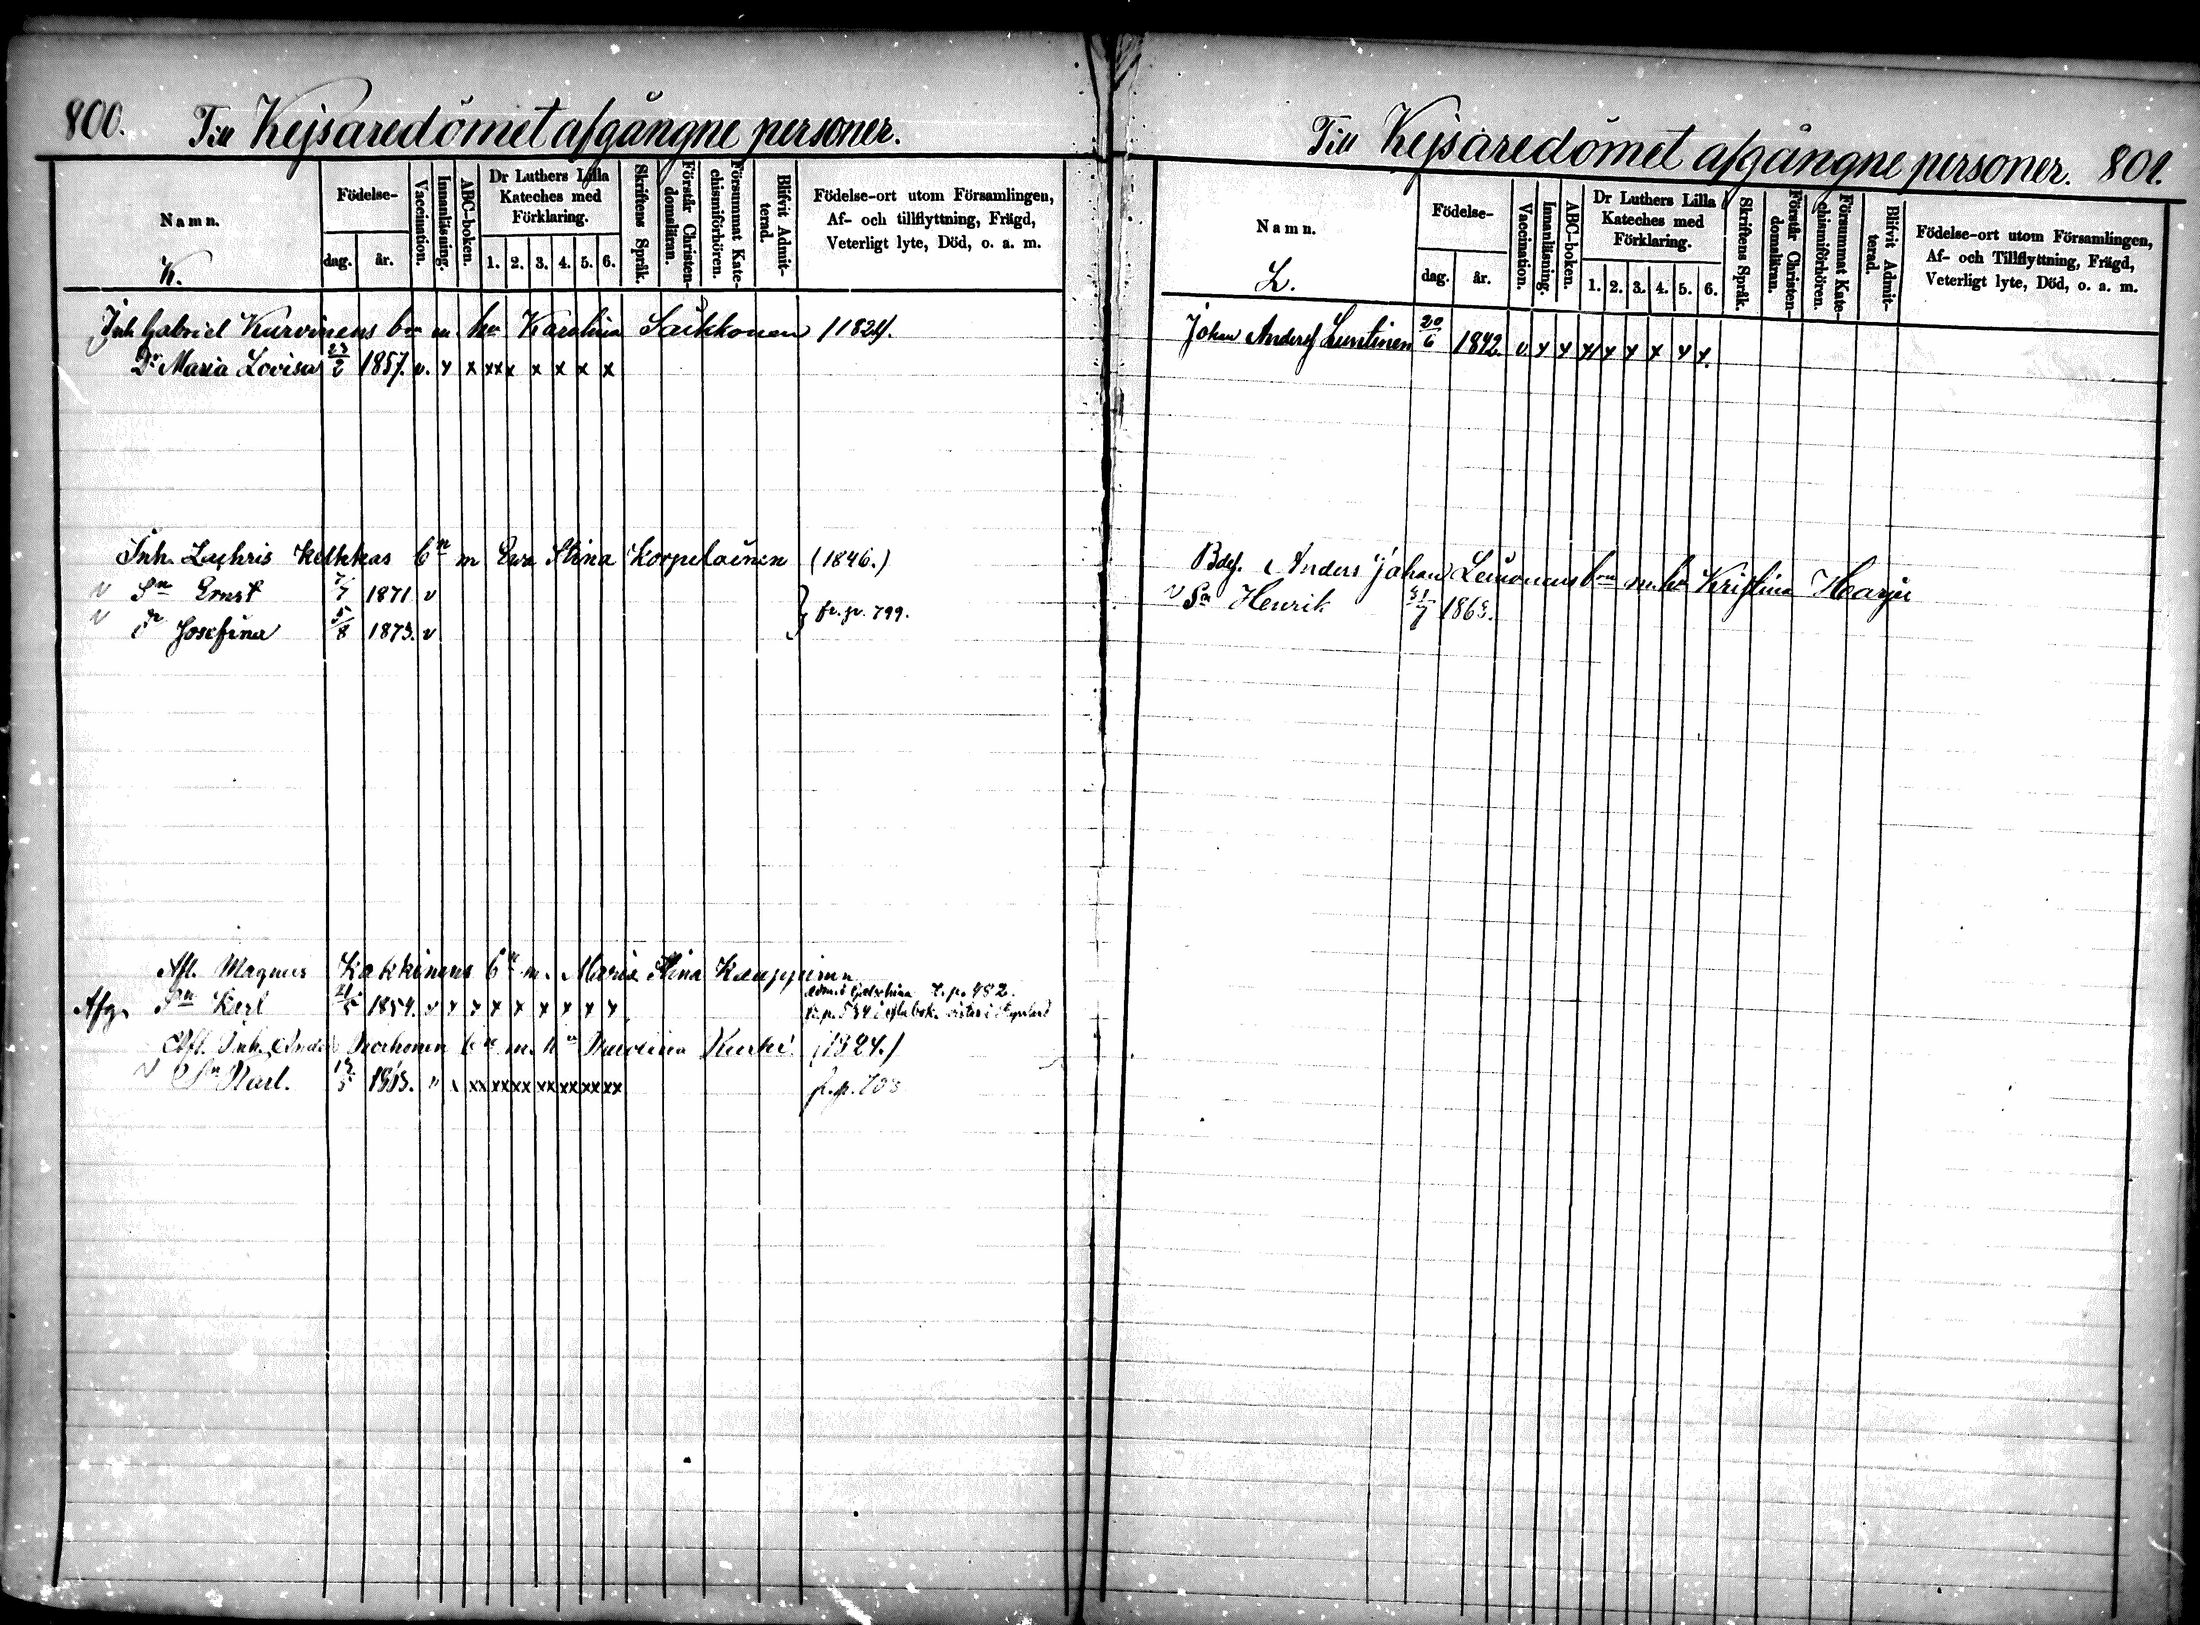 800. Till Kejsaredömet afgångne personer.
Namn.
K.
Födelse-
dag.
år.
Vaccination.
Innanläsning.
ABC-boken.
Dr Luthers Lilla
Kateches med
Förklaring.
1. 2. 3. 4. 5. 6.
Skriftens Språk.
Förstår Christen-
domsläran.
Försummat Kate-
chismiförhören.
Blifvit Admit-
terad.
Födelse-ort utom Församlingen,
Af- och tillflyttning, Frägd,
Veterligt lyte, Död, o. a. m.
Inh Gabriel Kurvinens bn m. hu Karolina Saikkonen 1824.
Dr Maria Lovisa 23/2 1857. v. x x xxx x x x x
Inh. Zachris Kelkkas bn m Eva Stina Korpelainen (1846.)
v Sn Ernst 1871 v
v Dr Josefina 5/8 1873. v } fr. p. 799.
Afl. Magnus Kakkinens bn m. Maria Stina Kauppinen
Afg. Sn Karl 1854. v x x x x x x x x
Afl. Inh. Korhonen bn m. hu Karolina Kurki (1824.)
v Sn Karl. v x xx xx xx xx xx xx xx f. p. 703
Till Kejsaredömet afgångne personer. 801.
Namn.
L.
Födelse-
dag.
år.
Vaccination.
Innanläsning.
ABC-boken.
Dr Luthers Lilla
Kateches med
Förklaring.
1. 2. 3. 4. 5. 6.
Skriftens Språk.
Förstår Christen-
domsläran.
Försummat Kate-
chismiförhören.
Blifvit Admit-
terad.
Födelse-ort utom Församlingen,
Af- och Tillflyttning, Frägd,
Veterligt lyte, Död, o. a. m.
Johan Anders Luntinen 20/6 1842. v x x x x x x x x.
Anders Johan Lemonens bn m. hu Kristina Harju
v Sn Henrik 31/7 1863.